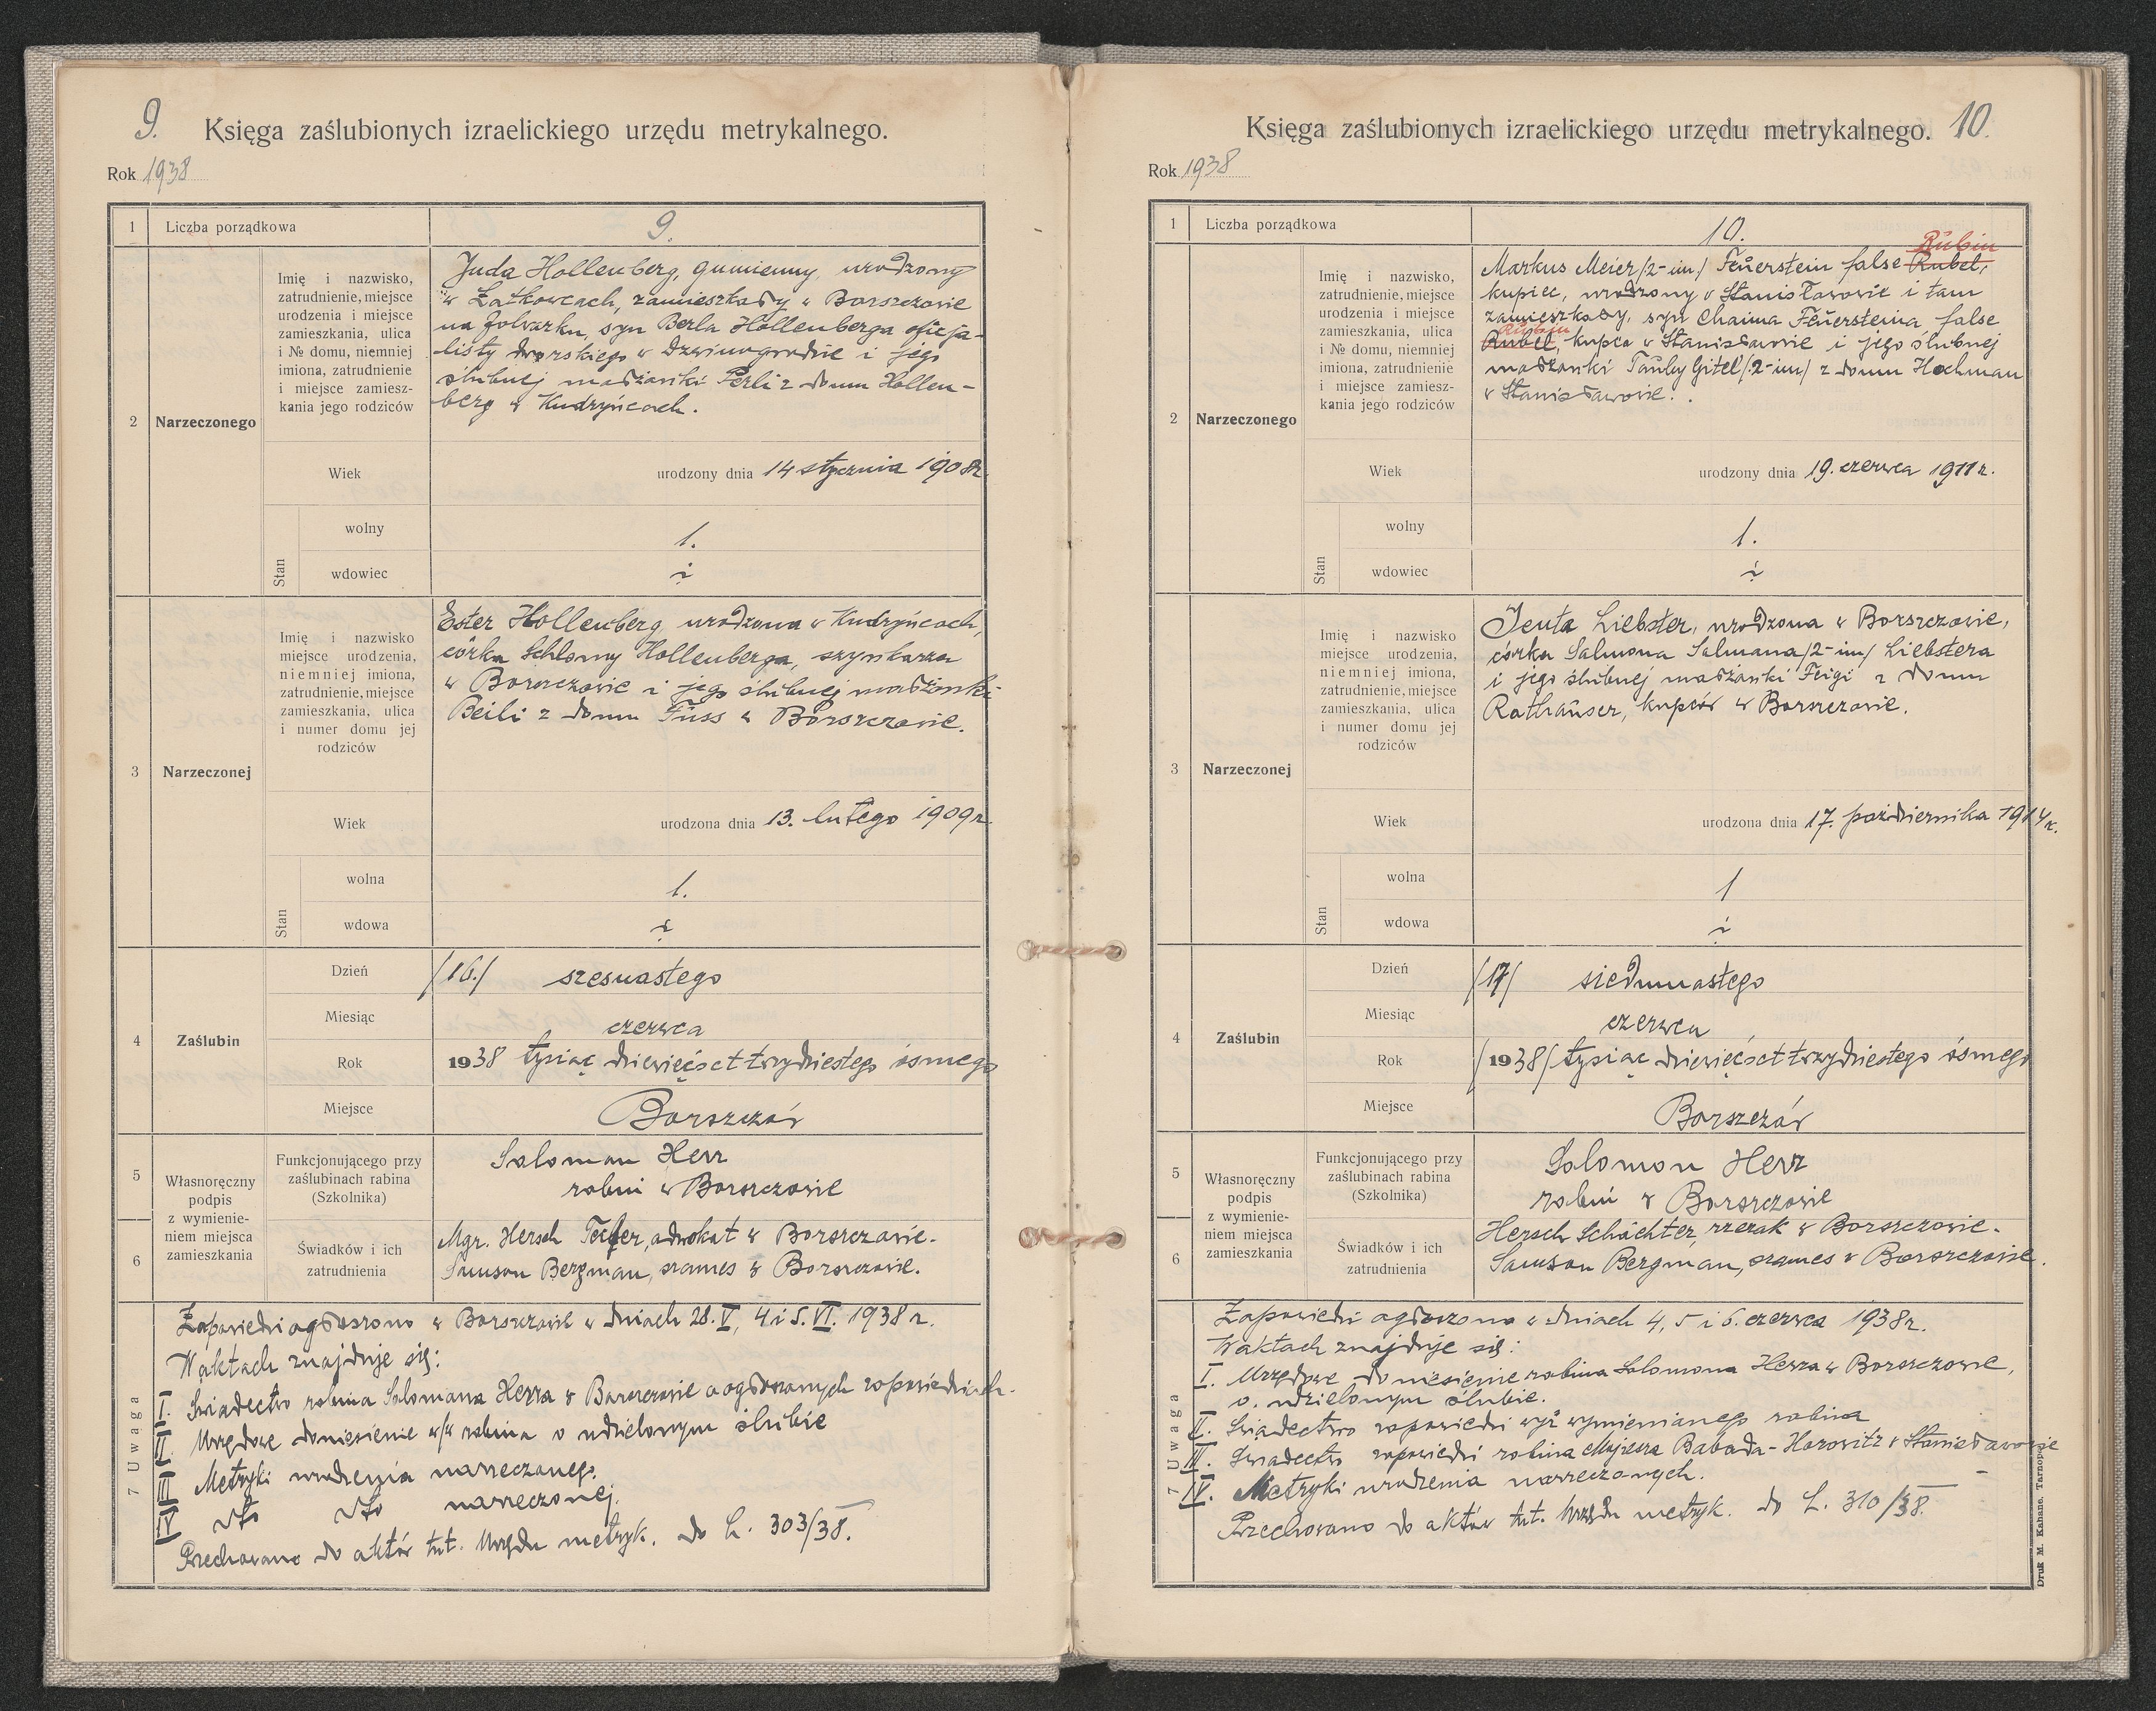 9. Księga zaślubionych izraelickiego urzędu metrykalnego.
Rok 1938
1 Liczba porządkowa 9.
2 Narzeczonego
Imię i nazwisko,
zatrudnienie, miejsce
urodzenia i miejsce
zamieszkania, ulica
i № domu, niemniej
imiona, zatrudnienie
i miejsce zamiesz-
kania jego rodziców
Juda Hollenberg, gumienny, urodzony
w Latkowcach, zamieszkały w Borszczowie
na folwarku, syn Berla Hollenberga oficja-
listy dworskiego w Dzwinogrodzie i jego
ślubnej małżonki Perli z domu Hollen-
berg w Kudryńcach.
Wiek urodzony dnia 14 stycznia 1908r.
Stan
wolny 1.
wdowiec
3 Narzeczonej
Imię i nazwisko
miejsce urodzenia,
niemniej imiona,
zatrudnienie, miejsce
zamieszkania, ulica
i numer domu jej
rodziców
Ester Hollenberg, urodzona w Kudryńcach,
córka Schlomy Hollenberga, szynkarza
w Borszczowie i jego ślubnej małżonki
Beili z domu Füss w Borszczowie.
Wiek urodzona dnia 13. lutego 1909r.
Stan
wolna 1.
wdowa
4 Zaślubin
Dzień /16./ szesnastego
Miesiąc czerwca
Rok 1938 tysiąc dziewięćset trzydziestego ósmego
Miejsce Borszczów
5
6
Własnoręczny
podpis
z wymienie-
niem miejsca
zamieszkania
Funkcjonującego przy
zaślubinach rabina
(Szkolnika)
Salomon Herr
rabin w Borszczowie
Świadków i ich
zatrudnienia
Mgr. Hersch, adwokat w Borszczowie.
Samson Bergman, szames w Borszczowie.
7 Uwaga
Zapowiedzi ogłoszono w Borszczowie w dniach 28. V, 4 i 5. VI. 1938 r.
W aktach znajduje się:
I. Świadectwo rabina Salomona Herra w Borszczowie o ogłoszonych zapowiedziach.
II. Urzędowe doniesienie w/w rabina o udzielonym ślubie
III Metryki urodzenia narzeczonego.
IV dto dto narzeczonej.
Przechowano do aktów tut. Urzędu metryk. do L. 303/38.
Księga zaślubionych izraelickiego urzędu metrykalnego. 10.
Rok 1938
1 Liczba porządkowa 10.
2 Narzeczonego
Imię i nazwisko,
zatrudnienie, miejsce
urodzenia i miejsce
zamieszkania, ulica
i № domu, niemniej
imiona, zatrudnienie
i miejsce zamiesz-
kania jego rodziców
Rubin
Markus Meier /2-im/ Feuerstein false Rubel,
kupiec, urodzony w Stanisławowie i tam
zamieszkały, syn Chaima Feuersteina false
Rubin
Rubel, kupca w Stanisławowie i jego ślubnej
małżonki Tauby Gitel /2-im/ z domu Hochman
w Stanisławowie.
Wiek urodzony dnia 19. czerwca 1911 r.
Stan
wolny 1.
wdowiec
3 Narzeczonej
Imię i nazwisko
miejsce urodzenia,
niemniej imiona,
zatrudnienie, miejsce
zamieszkania, ulica
i numer domu jej
rodziców
Jenta Liebster, urodzona w Borszczowie,
córka Salmona Salmana /2-im/ Liebstera
i jego ślubnej małżonki Feigi z domu
Rathauser, kupców w Borszczowie.
Wiek urodzona dnia 17. października 1914 r.
Stan
wolna 1
wdowa
4 Zaślubin
Dzień /17/ siedmnastego
Miesiąc czerwca
Rok /1938/ tysiąc dziewięćset trzydziestego ósmego
Miejsce Borszczów
5
6
Własnoręczny
podpis
z wymienie-
niem miejsca
zamieszkania
Funkcjonującego przy
zaślubinach rabina
(Szkolnika)
Salomon Herr
rabin w Borszczowie
Świadków i ich
zatrudnienia
Hersch Schächter, rzezak w Borszczowie.
Samson Bergman, szames w Borszczowie.
7 Uwaga
Zapowiedzi ogłoszono w dniach 4, 5 i 6. czerwca 1938r.
W aktach znajduje się:
I. Urzędowe doniesienie rabina Salomona Herra w Borszczowie,
o udzielonym ślubie.
II. Świadectwo zapowiedzi wyż wymienianego rabina
III. Świadectwo zapowiedzi rabina Mojżesza Babada-Horowitz w Stanisławowie
IV. Metryki urodzenia narzeczonych.
Przechowano do aktów tut. Urzędu metryk. do L. 310/38.
Druk M. Kahane. Tarnopol.